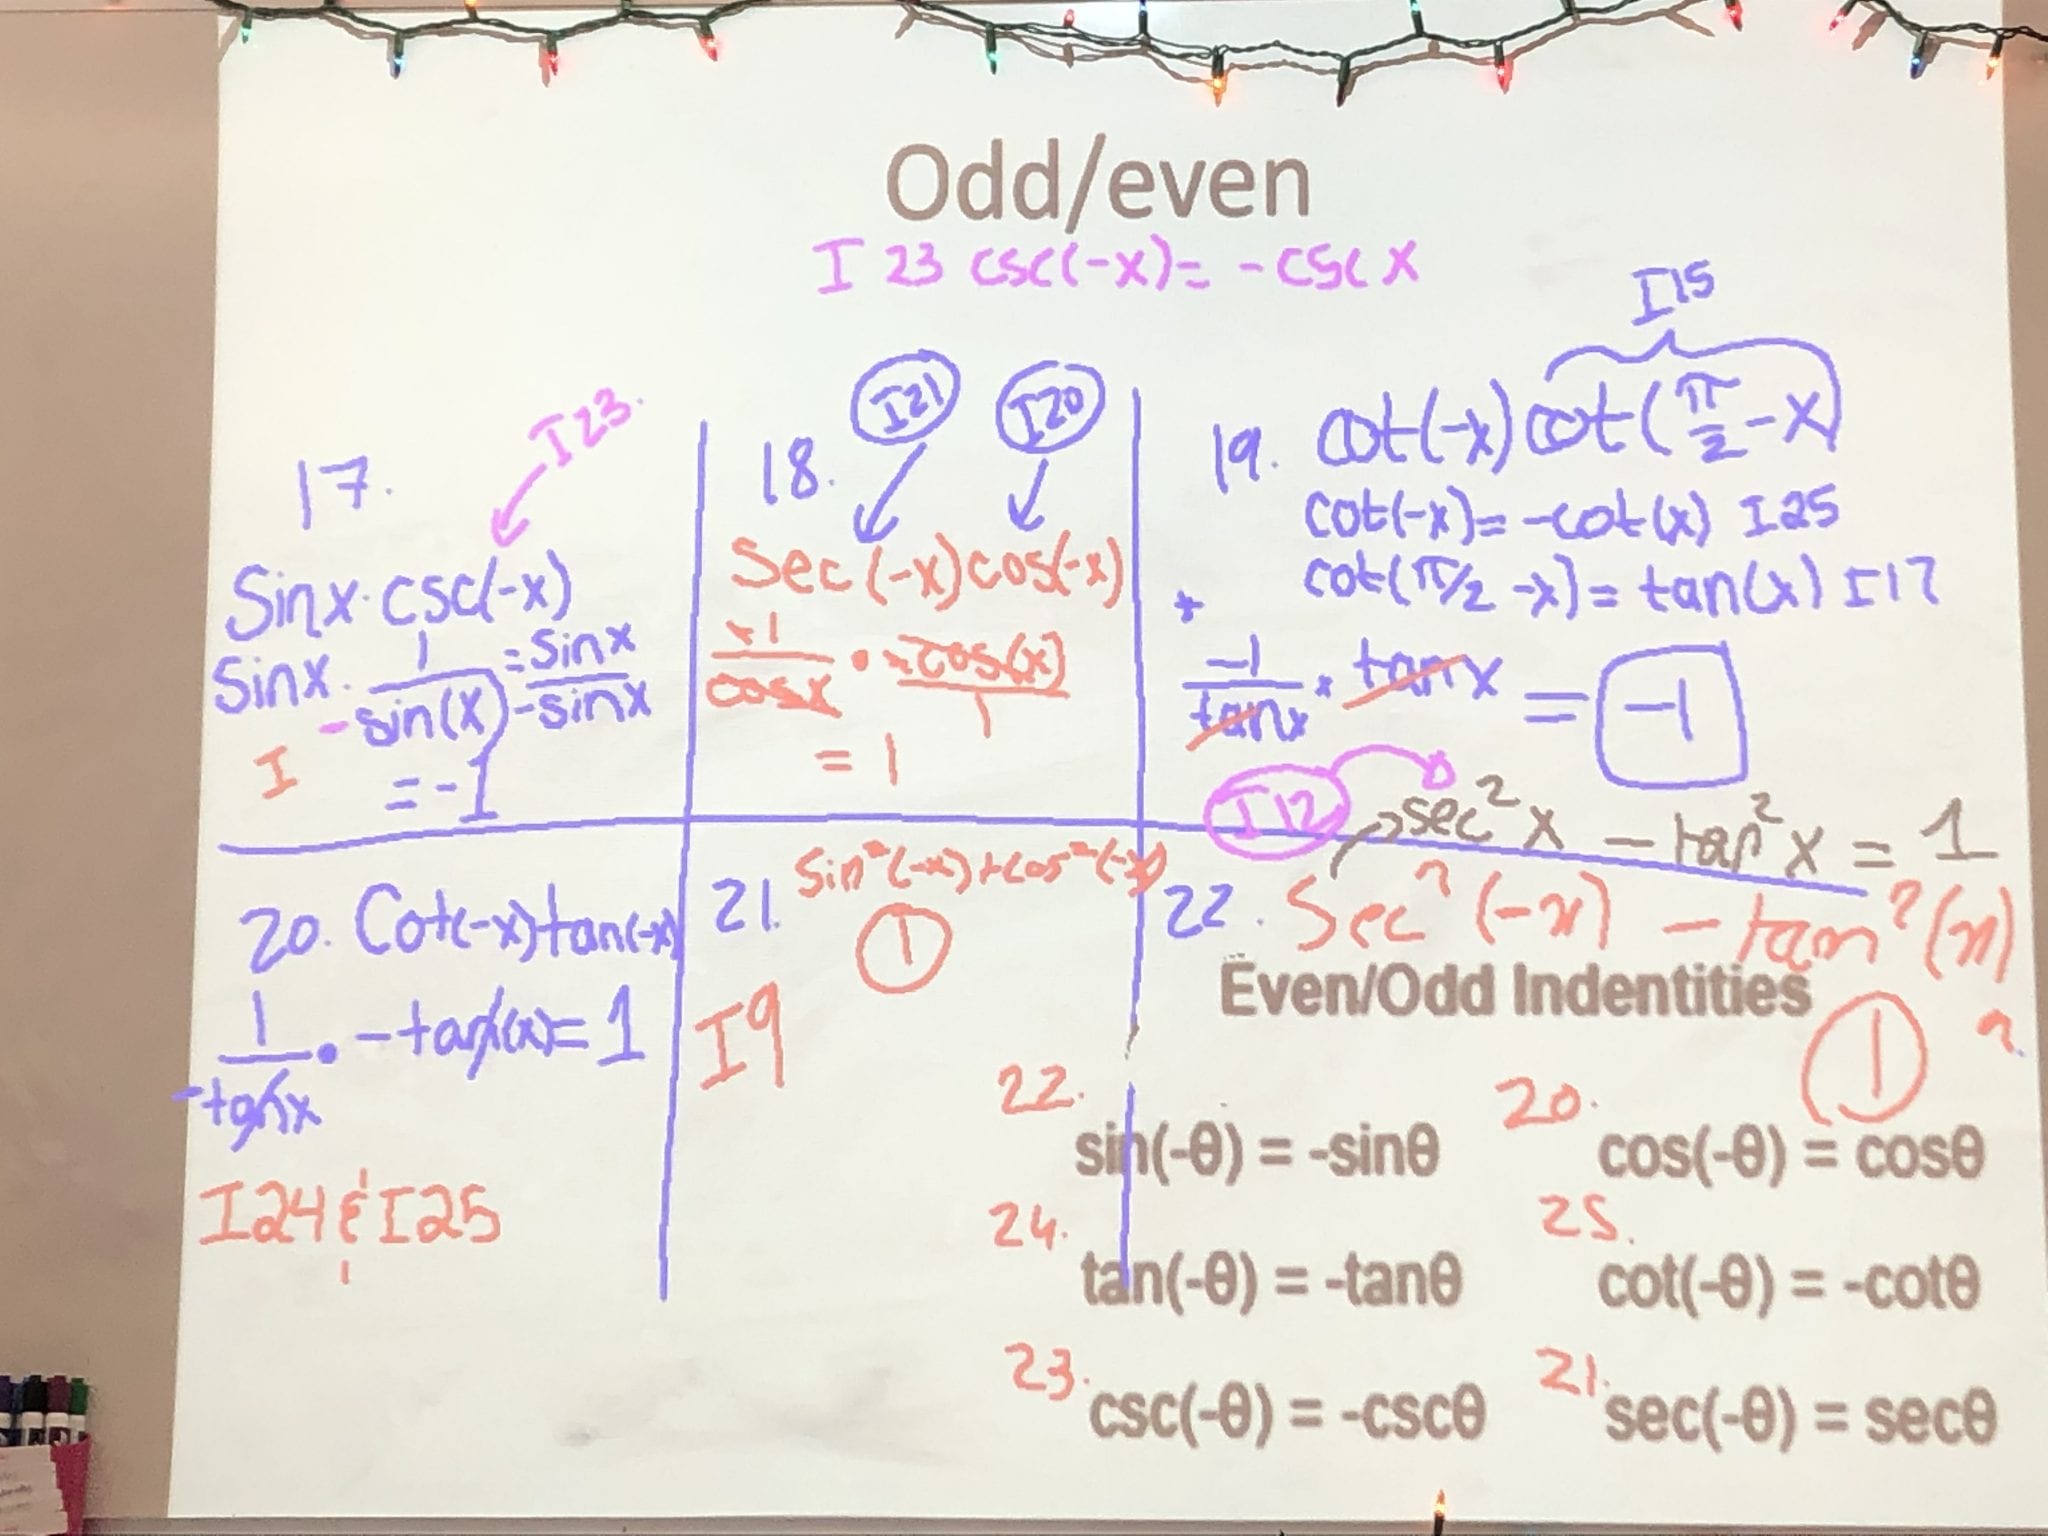 Odd/even
I 23 csc(-x) = -csc x
17.
I23.
Sinx · csc(-x)
Sinx · 1/-sin(x) = sinx/-sinx
I
= -1
18.
I21 I20
Sec(-x)cos(-x)
+1/cosx · cos(x)/1
= 1
I15
19. cot(-x)cot(π/2-x)
cot(-x) = -cot(x) I25
cot(π/2-x) = tan(x) I17
-1/tanx · tanx = -1
I12
sec²x - tan²x = 1
20. Cot(-x)tan(-x)
1/-tanx · -tan(x) = 1
I24 & I25
21. Sin²(-x)+cos²(-x)
1
I9
22. Sec²(-x) - tan²(x)
1
Even/Odd Indentities
22. sin(-θ) = -sinθ
20. cos(-θ) = cosθ
24. tan(-θ) = -tanθ
25. cot(-θ) = -cotθ
23. csc(-θ) = -cscθ
21. sec(-θ) = secθ